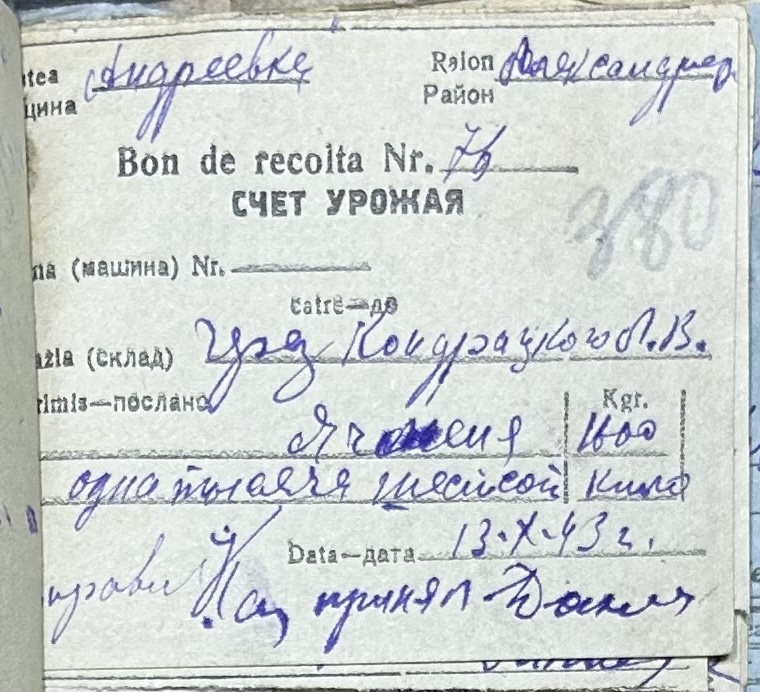 tea Андреевке Raion Александер
щина Район
Bon de recolta Nr. 76
СЧЕТ УРОЖАЯ
380
na (машина) Nr.
catre—до
azia (склад) Через Кондрацкого А.В.
rimis—послано Kgr.
Ячменя 1600
одна тысяча шестсот кило
Data—дата 13-X-43 г.
принял